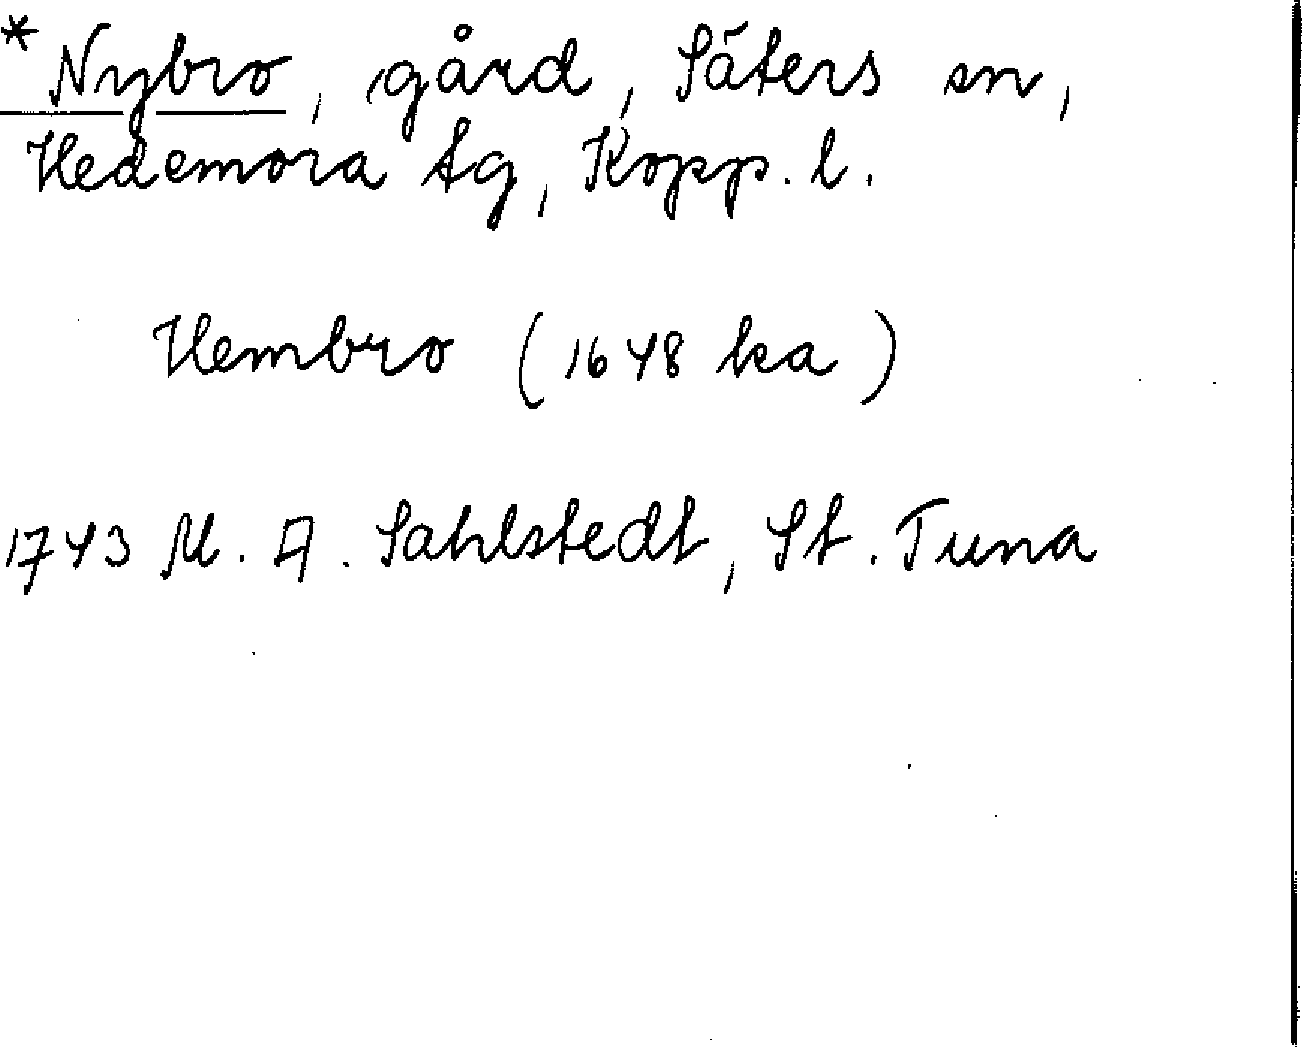 *Nybro, gård, Säters sn,
Hedemora tg, Kopp. l.
Hembro (1648 ka)
1743 M. A. Sahlstedt, St. Tuna